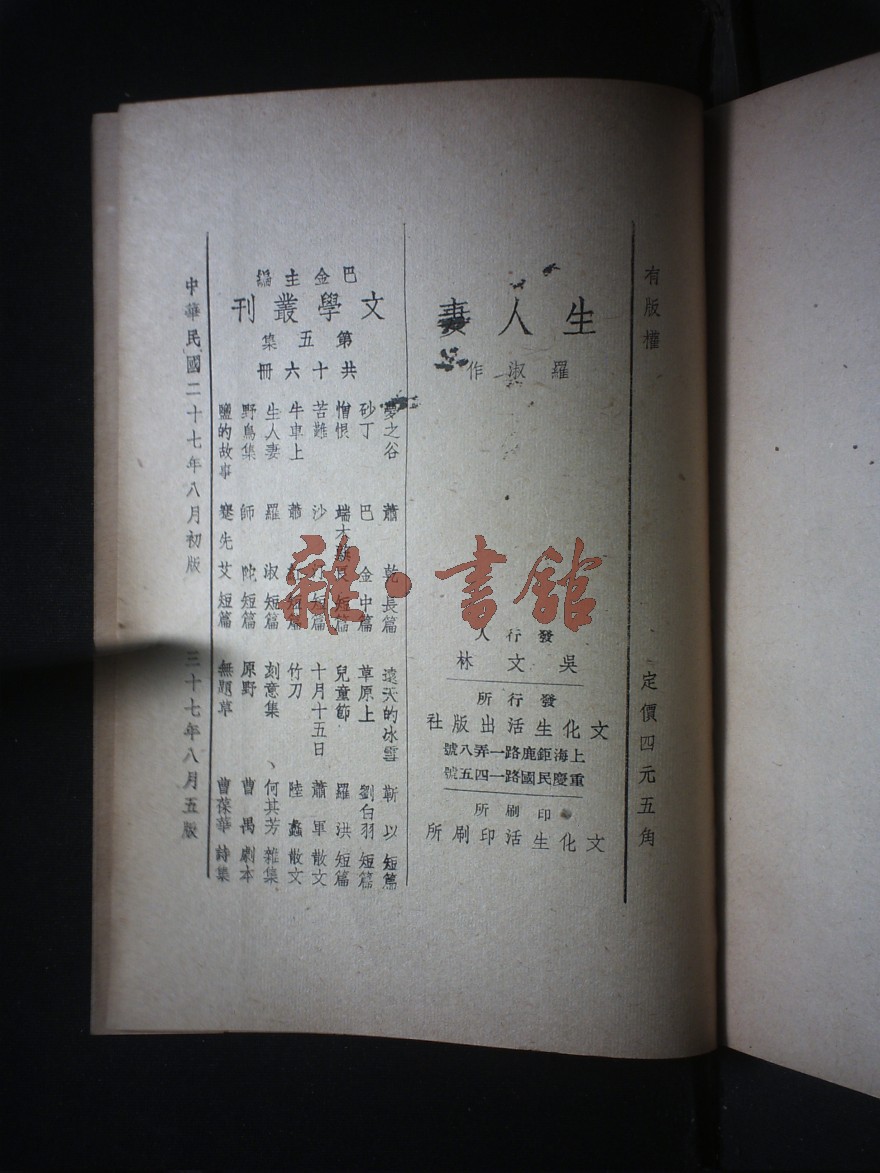 有版權
定價四元五角
生人妻
羅淑作
發行人
吳文林
發行所
文化生活出版社
上海鉅鹿路一弄八號
重慶民國路一四五號
印刷所
文化生活印刷所
巴金主編
文學叢刊
第五集
共十六冊
夢之谷 蕭乾 長篇
砂丁 巴金 中篇
憎恨 端木蕻良 短篇
苦難 沙汀 短篇
牛車上 蕭紅 短篇
生人妻 羅淑 短篇
野鳥集 師陀 短篇
鹽的故事 蹇先艾 短篇
遠天的冰雪 靳以 短篇
草原上 劉白羽 短篇
兒童節 羅洪 短篇
十月十五日 蕭軍 散文
竹刀 陸蠡 散文
刻意集 何其芳 雜集
原野 曹禺 劇本
無題草 曹葆華 詩集
中華民國二十七年八月初版
三十七年八月五版
雜·書館